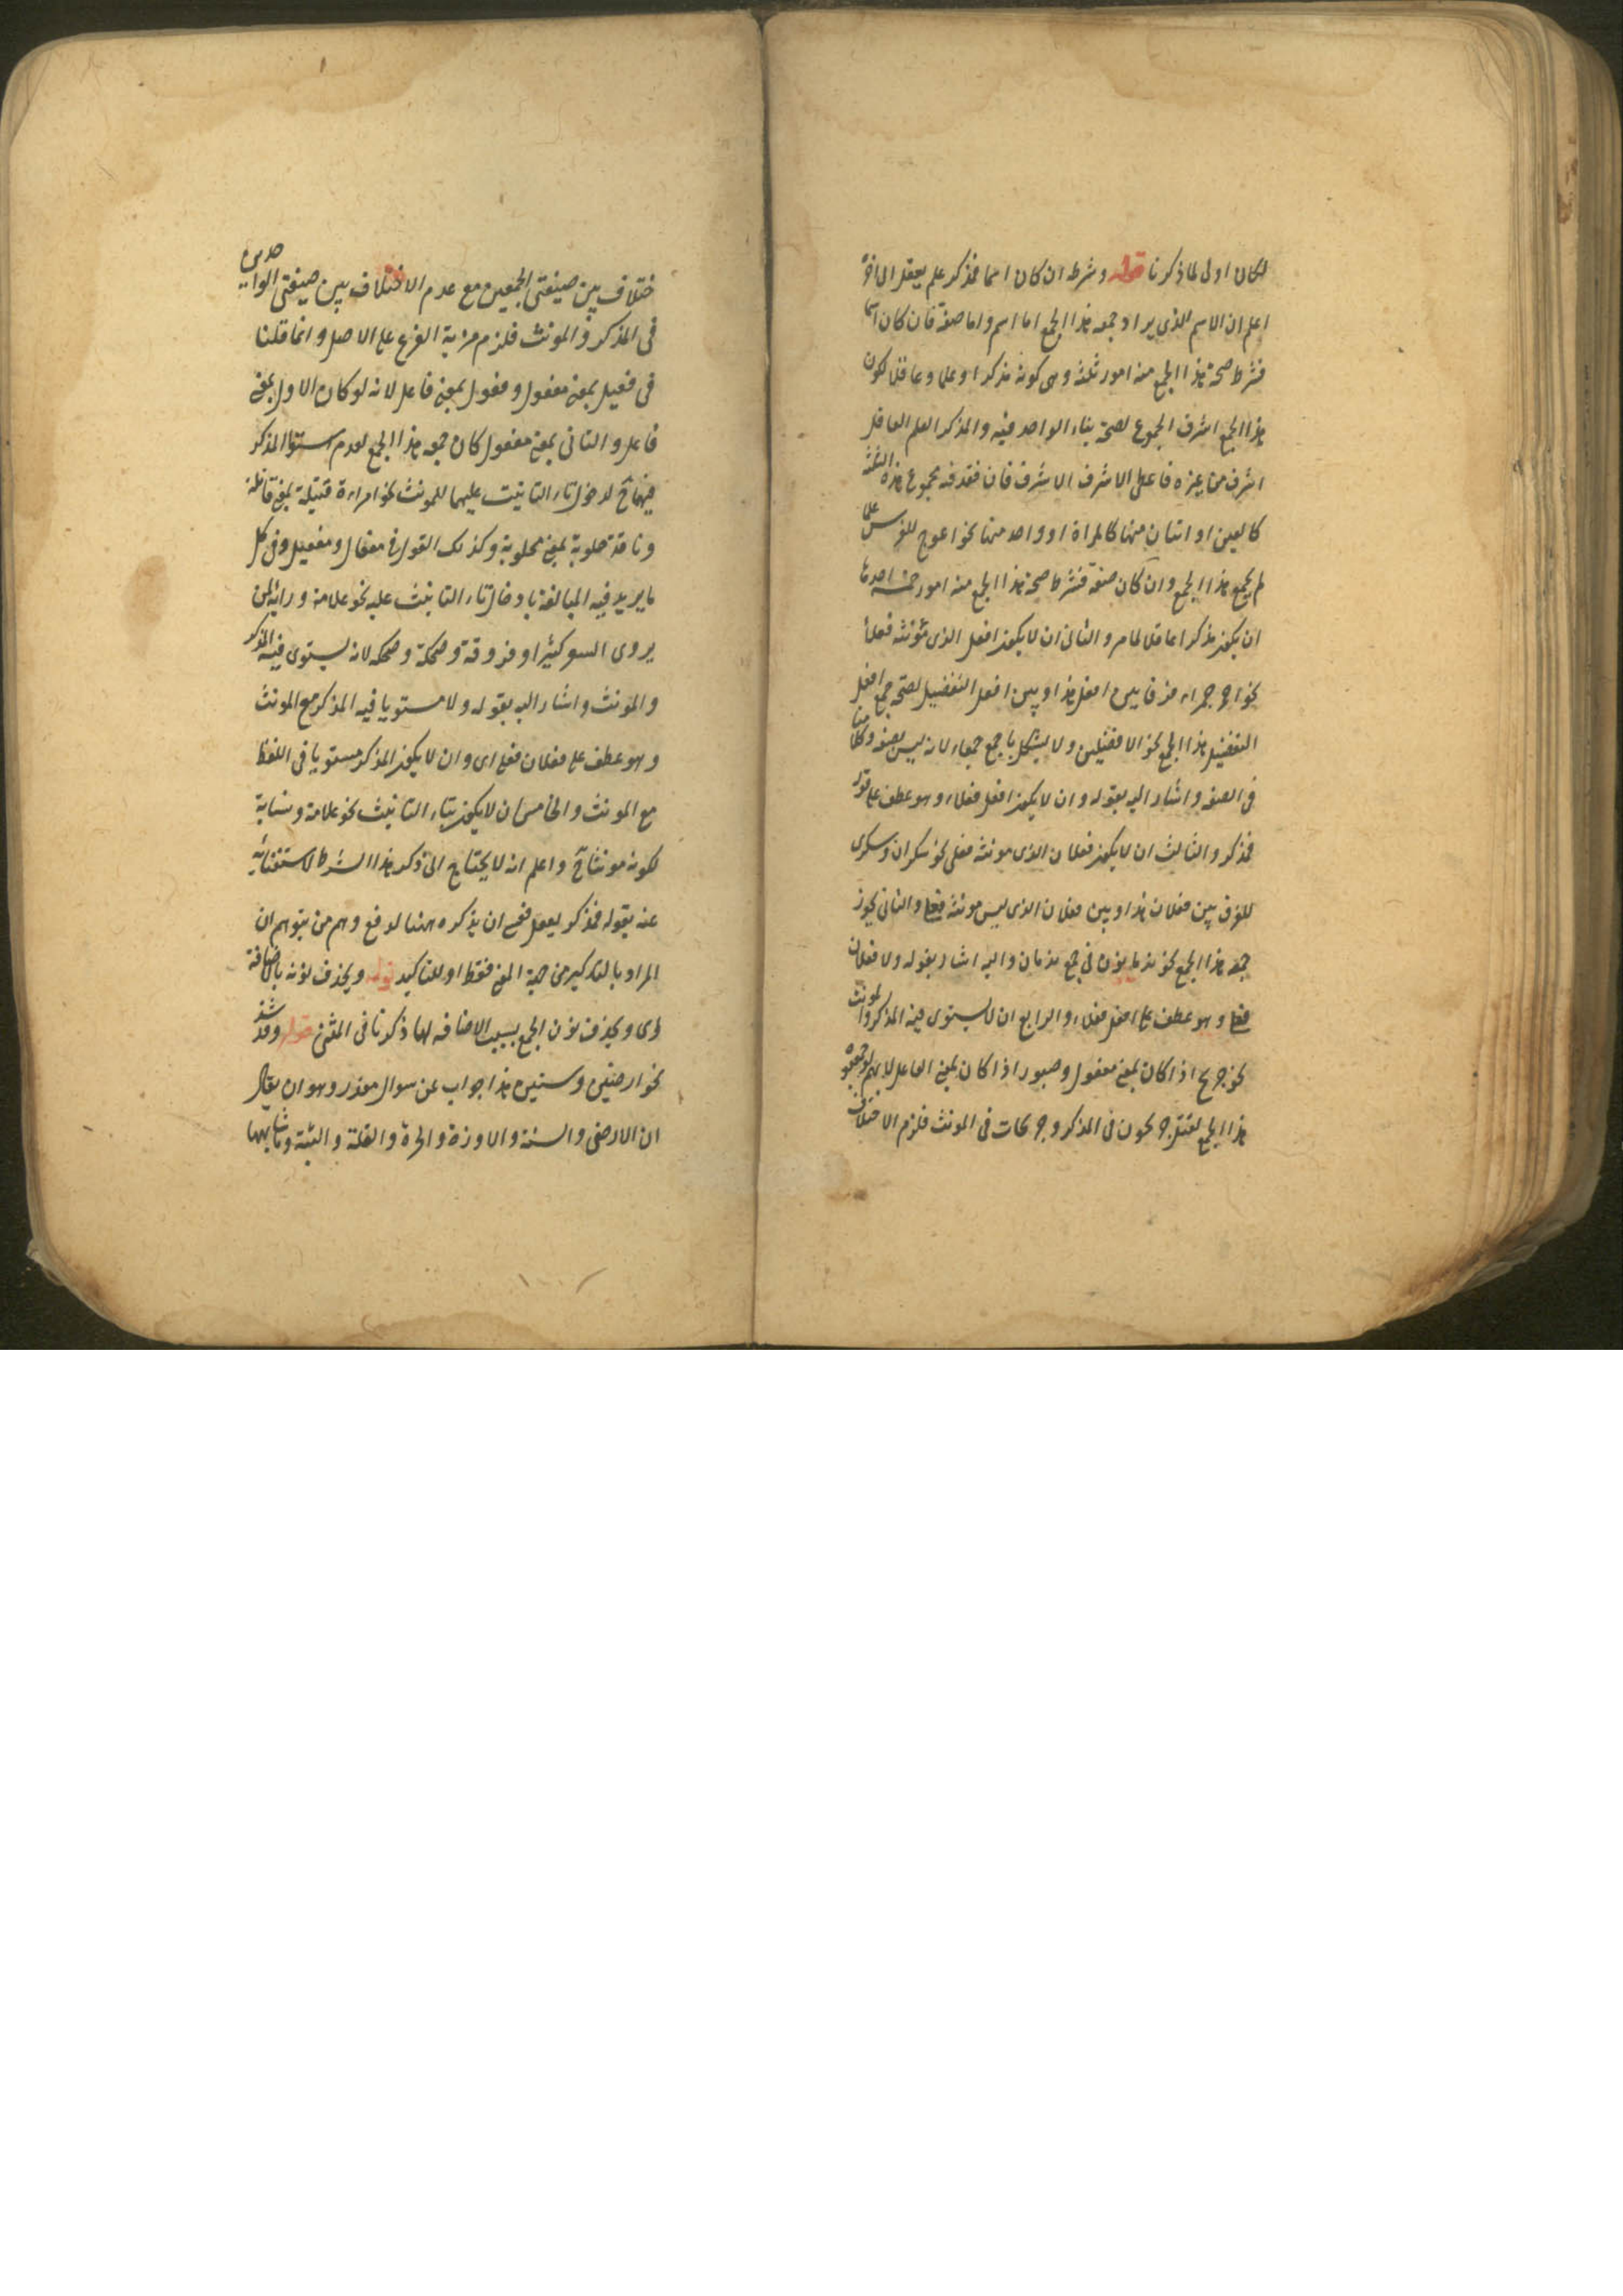 لكان اولى لما ذكرنا قوله وشرطه ان كان اسما فمذكر علم يعقل الى اخره
اعلم ان الاسم الذي يراد جمعه هذا الجمع اما اسم واما صفة فان كان اسما
فشرط صحة هذا الجمع منه امور ثلثة وهى كونه مذكرا وعلما وعاقلا لكون
هذا الجمع اشرف الجموع لصحة بناء الواحد فيه والمذكر العلم العاقل
اشرف من غيره فاعطى الاشرف الاشرف فان فقد فيه مجموع هذه الثلثة
كالعين او اثنان منها كالمراة او واحد منها نحو اعوج للفرس علما
لم يجمع هذا الجمع وان كان صفة فشرط صحة هذا الجمع منه امور خمسة احدها
ان يكون مذكرا عاقلا لما مر والثانى ان لا يكون افعل الذى مؤنثه فعلاء
نحو احمر حمراء فرقا بين افعل هذا وبين افعل التفضيل لصحة جمع افعل
التفضيل هذا الجمع نحو الافضلين ولا يشكل باجمع جمعاء لانه ليس بصفة وكلامنا
فى الصفة واشار اليه بقوله وان لا يكون افعل فعلاء وهو عطف على قوله
فمذكر والثالث ان لا يكون فعلان الذى مونثه فعلى نحو سكران وسكرى
للفرق بين فعلان هذا وبين فعلان الذى ليس مونثه فعلى والثانى يجوز
جمعه هذا الجمع نحو ندمانون فى جمع ندمان واليه اشار بقوله ولا فعلان
فعلى وهو عطف على افعل فعلاء والرابع ان لا يستوى فيه المذكر والمونث
نحو جريح اذا كان بمعنى مفعول وصبور اذا كان بمعنى الفاعل لانهم لو جمعوه
هذا الجمع لقيل جريحون فى المذكر وجريحات فى المونث فلزم الاختلاف
ختلاف بين صيغتى الجمعين مع عدم الاختلاف بين صيغتى الواحدين
فى المذكر والمونث فلزم مزية الفرع على الاصل وانما قلنا
فى فعيل بمعنى مفعول وفعول بمعنى فاعل لانه لو كان الاول بمعنى
فاعل والثانى بمعنى مفعول كان جمعه هذا الجمع لعدم استواء المذكر
فيهما ح لدخول تاء التانيث عليهما للمونث نحو امراة قتيلة بمعنى قاتلة
وناقة حلوبة بمعنى محلوبة وكذلك القول فى مفعال ومفعيل وفى كل
ما يريد فيه المبالغة بادخال تاء التانيث عليه نحو علامة وراية لمن
يروى الشعر كثيرا وفروقة وضحكة وضحكه لانه يستوى فيه المذكر
والمونث واشار اليه بقوله ولا مستويا فيه المذكر مع المونث
وهو عطف على فعلان فعلى اى وان لا يكون المذكر مستويا فى اللفظ
مع المونث والخامس ان لا يكون بتاء التانيث نحو علامة ونسابة
لكونه مونثا ح واعلم انه لا يحتاج الى ذكر هذا الشرط لاستغنائه
عنه بقوله فمذكر يعقل فعسى ان يذكره ههنا لدفع وهم من يتوهم ان
المراد بالتذكير من جهة المعنى فقط او للتاكيد قوله ويحذف نونه بالاضافة
اى ويحذف نون الجمع بسبب الاضافه لما ذكرنا فى المثنى قوله وقد شذ
نحو ارضين وسنين هذا جواب عن سوال مقدر وهو ان يقال
ان الارض والسنة والاوزة والحرة والقلة والثبة وما شابهها